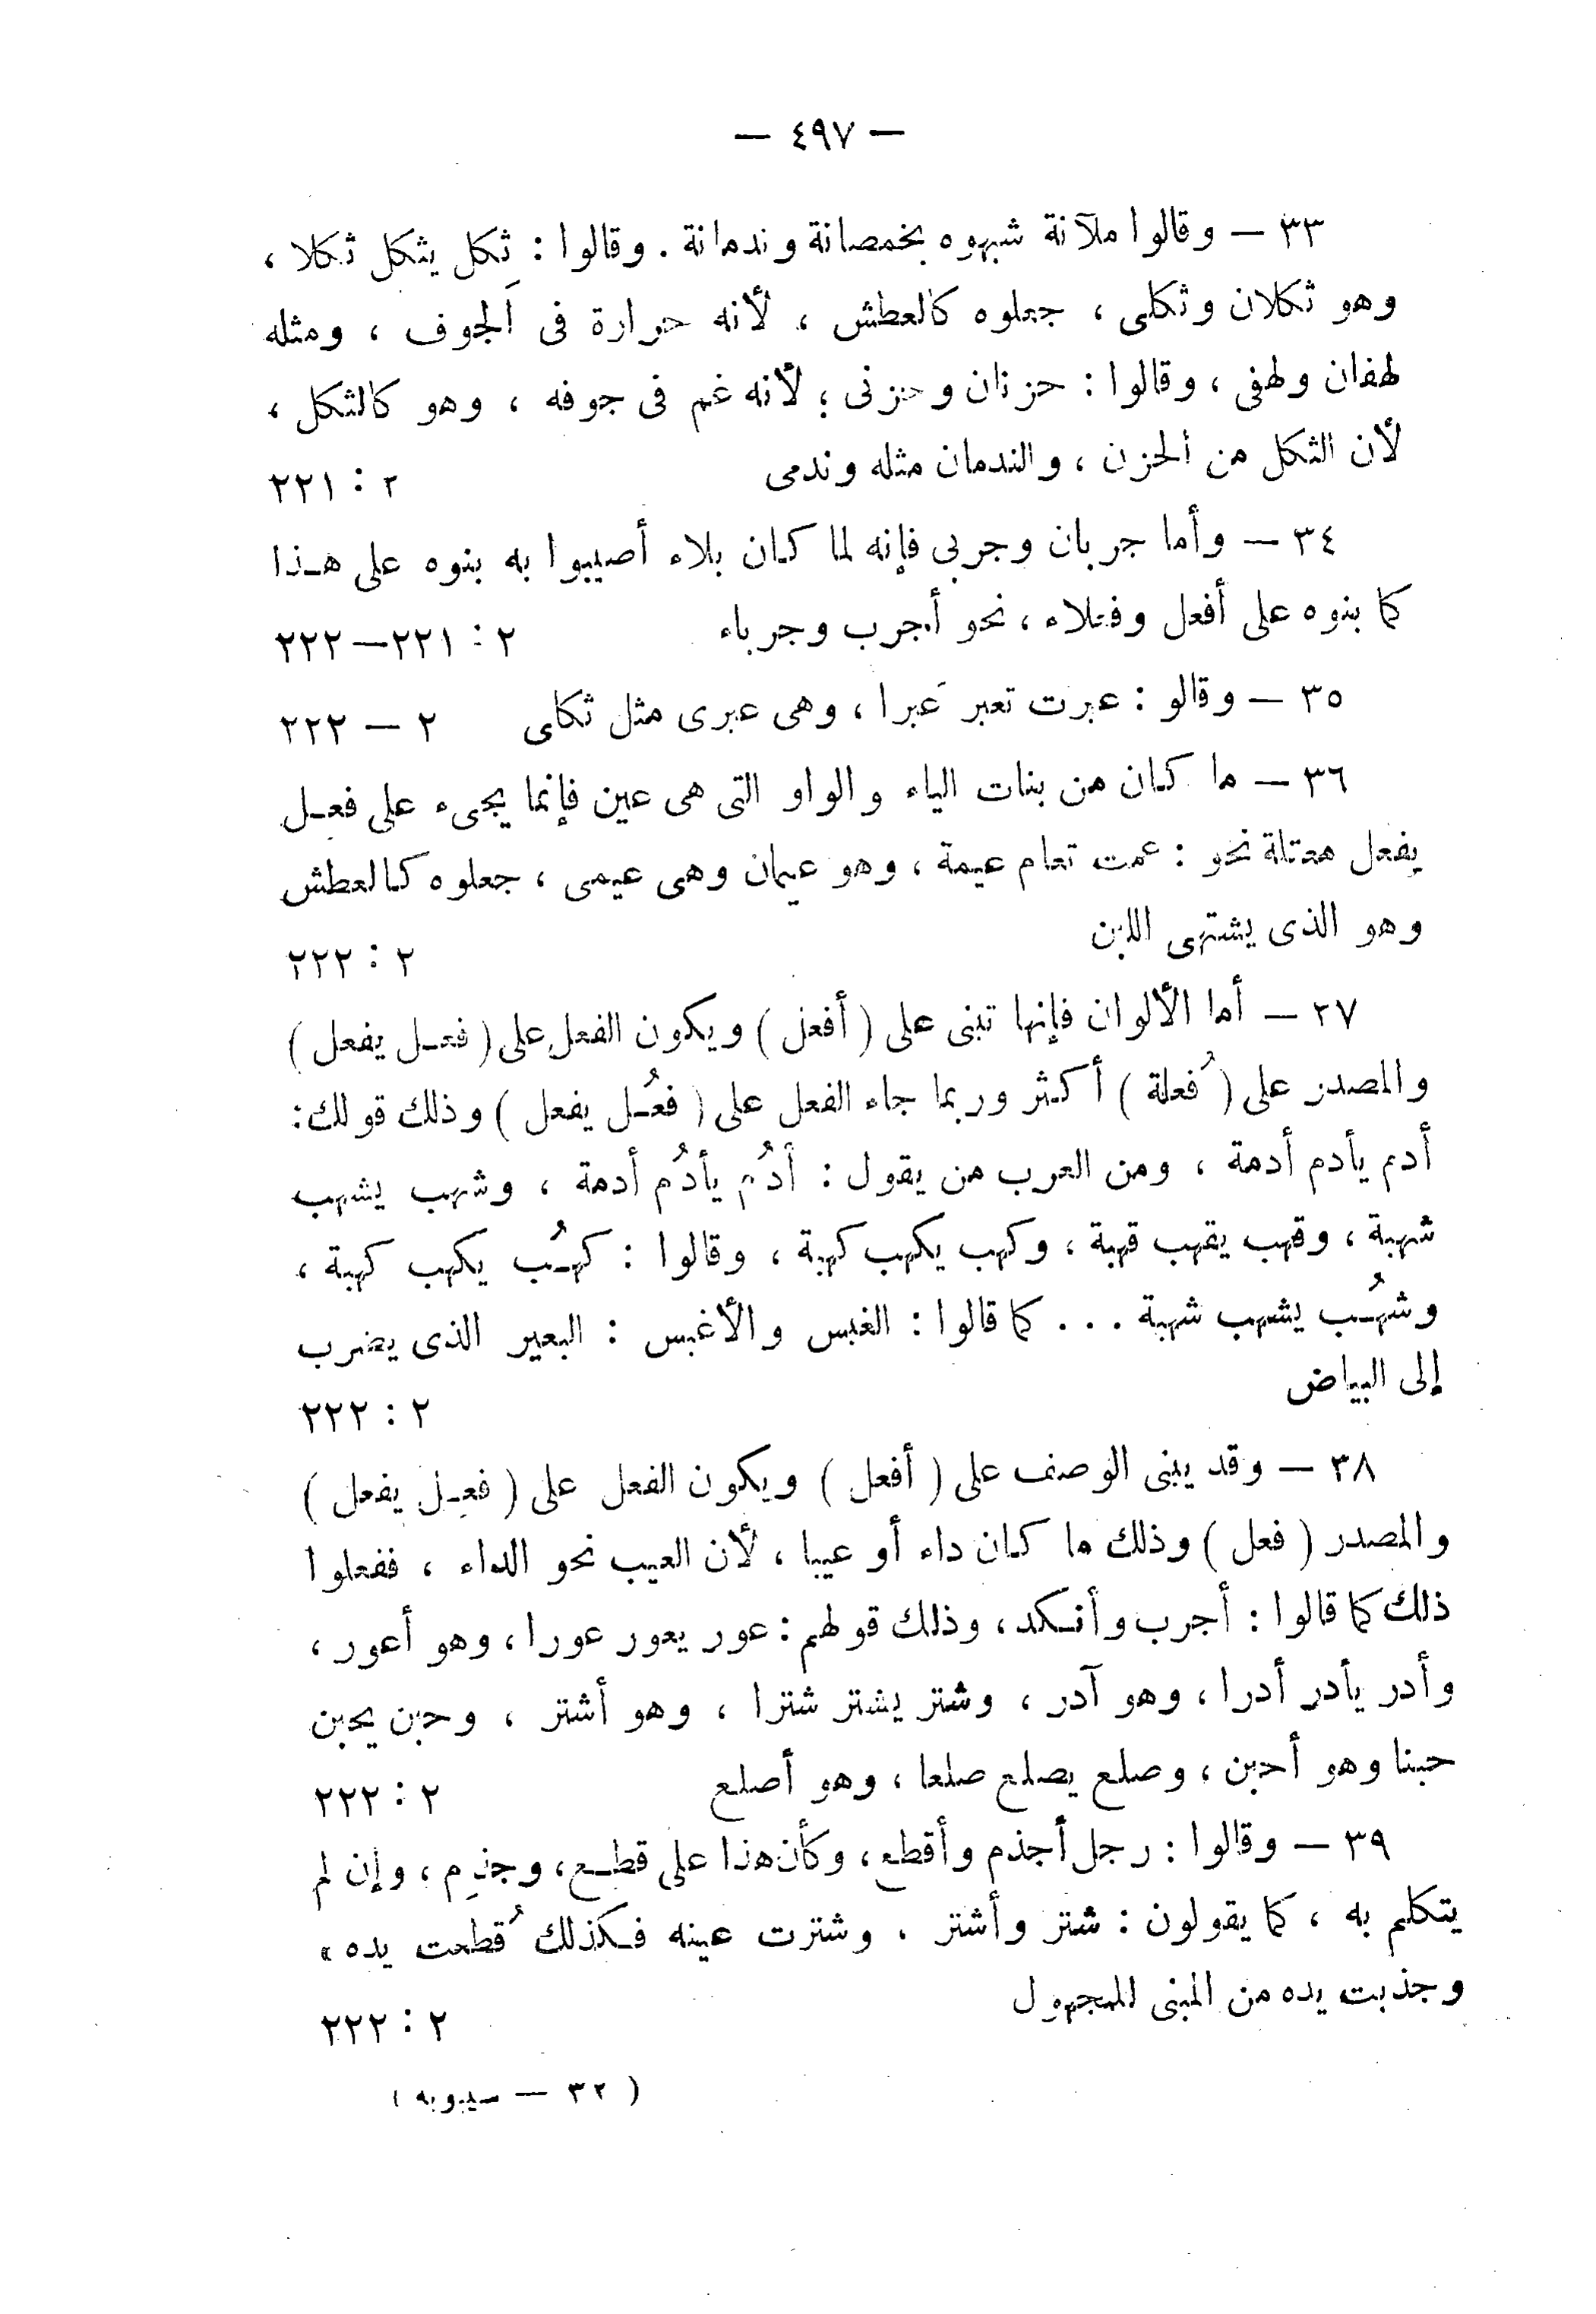 — ٤٩٧ —
٣٣ — وقالوا ملآنة شبهوه بخمصانة وندمانة . وقالوا : ثَكِل يثكل ثكلا ،
وهو ثكلان وثكلى ، جعلوه كالعطش ، لأنه حرارة فى الجوف ، ومثله
لهفان ولهفى ، وقالوا : حزنان وحزنى ؛ لأنه غم فى جوفه ، وهو كالثكل ،
لأن الثكل من الحزن ، والندمان مثله وندمى ٢ : ٢٢١
٣٤ — وأما جربان وجربى فإنه لما كان بلاء أصيبوا به بنوه على هذا
كما بنوه على أفعل وفعلاء ، نحو أجرب وجرباء ٢ : ٢٢١—٢٢٢
٣٥ — وقالو : عبرت تعبر عَبرا ، وهى عبرى مثل ثكلى ٢ — ٢٢٢
٣٦ — ما كان من بنات الياء والواو التى هى عين فإنما يجىء على فعل
يفعل معتلة نحو : عمت تعام عيمة ، وهو عيمان وهى عيمى ، جعلوه كالعطش
وهو الذى يشتهى اللبن ٢ : ٢٢٢
٣٧ — أما الألوان فإنها تبنى على ( أفعل ) ويكون الفعل على ( فعل يفعل )
والمصدر على ( فُعلة ) أكثر وربما جاء الفعل على ( فعُل يفعل ) وذلك قولك :
أدم يأدم أدمة ، ومن العرب من يقول : أدُم يأدُم أدمة ، وشهب يشهب
شهبة ، وقهب يقهب قهبة ، وكهب يكهب كهبة ، وقالوا : كهُب يكهب كهبة ،
وشهُب يشهب شهبة ... كما قالوا : الغبس والأغبس : البعير الذى يضرب
إلى البياض ٢ : ٢٢٢
٣٨ — وقد يبنى الوصف على ( أفعل ) ويكون الفعل على ( فعِل يفعل )
والمصدر ( فعل ) وذلك ما كان داء أو عيبا ، لأن العيب نحو الداء ، ففعلوا
ذلك كما قالوا : أجرب وأنكد ، وذلك قولهم : عور يعور عورا ، وهو أعور ،
وأدر يأدر أدرا ، وهو آدر ، وشتر يشتر شترا ، وهو أشتر ، وحبن يحبن
حبنا وهو أحبن ، وصلع يصلع صلعا ، وهو أصلع ٢ : ٢٢٢
٣٩ — وقالوا : رجل أجذم وأقطع ، وكأن هذا على قطع ، وجذِم ، وإن لم
يتكلم به ، كما يقولون : شتر وأشتر ، وشترت عينه فكذلك قُطعت يده ،
وجذبت يده من المبنى للمجهول ٢ : ٢٢٢
( ٣٢ — سيبويه )